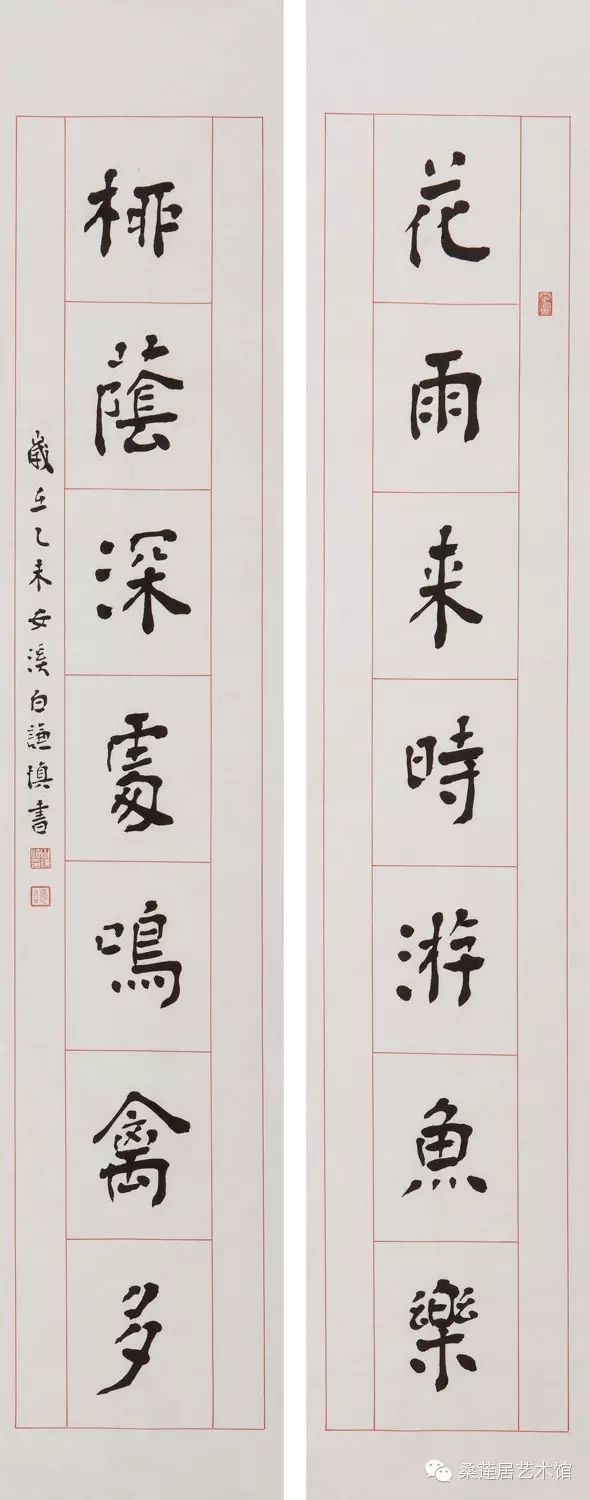 花雨来時游魚樂
桺蔭深處鳴禽多
歲在乙未安溪白謙慎書
桑蓮居艺术馆